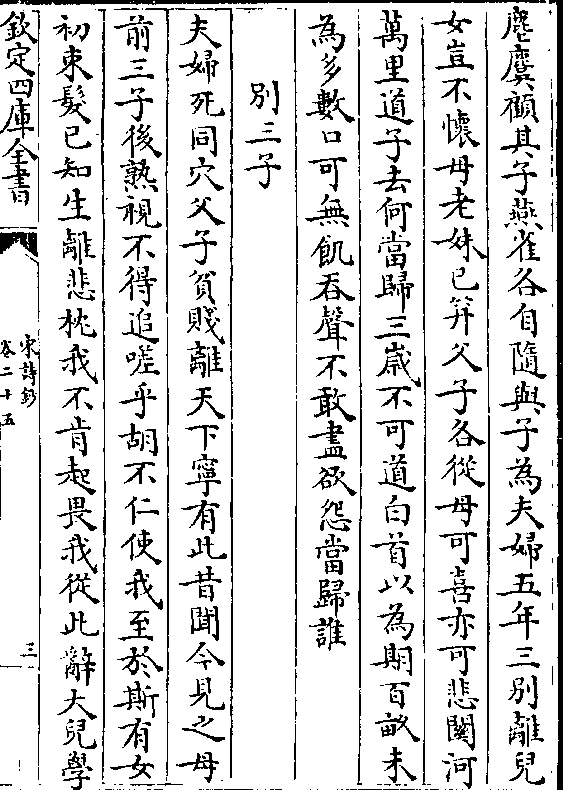 麀麌顧其子燕雀各自隨與子為夫婦五年三別離兒
女豈不懷母老妹已笄父子各從母可喜亦可悲關河
萬里道子去何當歸三歲不可道白首以為期百畝未
為多數口可無飢吞聲不敢盡欲怨當歸誰
別三子
夫婦死同穴父子貧賤離天下寧有此昔聞今見之母
前三子後熟視不得追嗟乎胡不仁使我至於斯有女
初束髮已知生離悲枕我不肯起畏我從此辭大兒學
欽定四庫全書
宋詩鈔
卷二十五
三